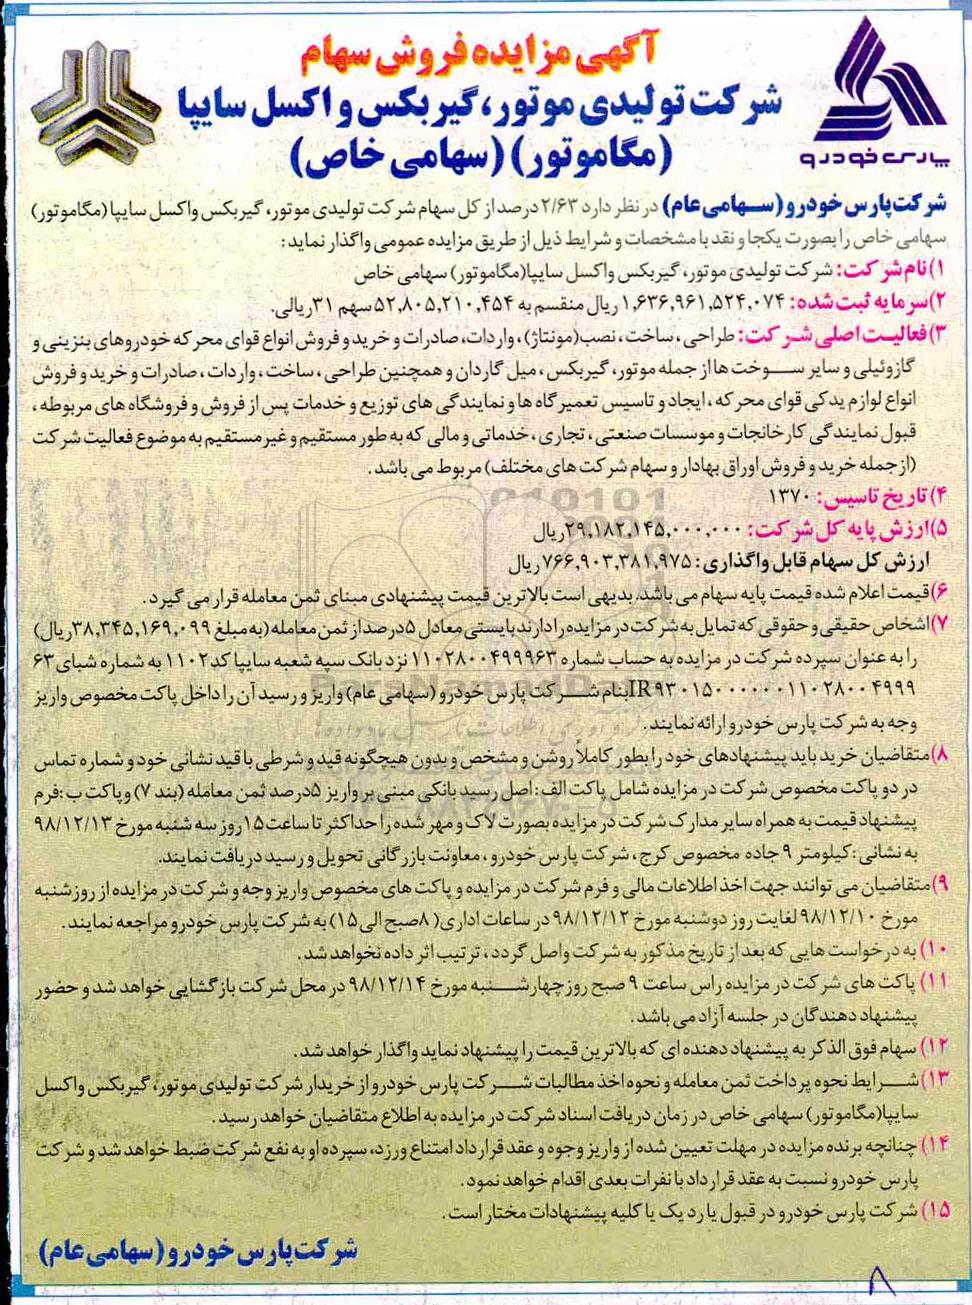 آگهی مزایده فروش سهام
شرکت تولیدی موتور، گیربکس و اکسل سایپا
(مگاموتور) (سهامی خاص)
پارس خودرو
شرکت پارس خودرو (سهامی عام) در نظر دارد ۲/۶۳ درصد از کل سهام شرکت تولیدی موتور، گیربکس واکسل سایپا (مگاموتور)
سهامی خاص را بصورت یکجا و نقد با مشخصات و شرایط ذیل از طریق مزایده عمومی واگذار نماید:
۱) نام شرکت: شرکت تولیدی موتور، گیربکس واکسل سایپا(مگاموتور) سهامی خاص
۲) سرمایه ثبت شده: ۱,۶۳۶,۹۶۱,۵۲۴,۰۷۴ ریال منقسم به ۵۲,۸۰۵,۲۱۰,۴۵۴ سهم ۳۱ ریالی.
۳) فعالیت اصلی شرکت: طراحی، ساخت، نصب(مونتاژ)، واردات، صادرات و خرید و فروش انواع قوای محرکه خودروهای بنزینی و
گازوئیلی و سایر سوخت ها از جمله موتور، گیربکس، میل گاردان و همچنین طراحی، ساخت، واردات، صادرات و خرید و فروش
انواع لوازم یدکی قوای محرکه، ایجاد و تاسیس تعمیرگاه ها و نمایندگی های توزیع و خدمات پس از فروش و فروشگاه های مربوطه،
قبول نمایندگی کارخانجات و موسسات صنعتی، تجاری، خدماتی و مالی که به طور مستقیم و غیر مستقیم به موضوع فعالیت شرکت
(از جمله خرید و فروش اوراق بهادار و سهام شرکت های مختلف) مربوط می باشد.
۴) تاریخ تاسیس: ۱۳۷۰
۵) ارزش پایه کل شرکت: ۲۹,۱۸۲,۱۴۵,۰۰۰,۰۰۰ ریال
ارزش کل سهام قابل واگذاری: ۷۶۶,۹۰۳,۳۸۱,۹۷۵ ریال
۶) قیمت اعلام شده قیمت پایه سهام می باشد. بدیهی است بالاترین قیمت پیشنهادی مبنای ثمن معامله قرار می گیرد.
۷) اشخاص حقیقی و حقوقی که تمایل به شرکت در مزایده را دارند بایستی معادل ۵ درصد از ثمن معامله (به مبلغ ۳۸,۳۴۵,۱۶۹,۰۹۹ ریال)
را به عنوان سپرده شرکت در مزایده به حساب شماره ۱۱۰۲۸۰۰۴۹۹۹۶۳ نزد بانک سپه شعبه سایپا کد ۱۱۰۲ به شماره شبای ۶۳
IR۹۳۰۱۵۰۰۰۰۰۰۱۱۰۲۸۰۰۴۹۹۹ بنام شرکت پارس خودرو (سهامی عام) واریز و رسید آن را داخل پاکت مخصوص واریز
وجه به شرکت پارس خودرو ارائه نمایند.
۸) متقاضیان خرید باید پیشنهادهای خود را بطور کاملاً روشن و مشخص و بدون هیچگونه قید و شرطی با قید نشانی خود و شماره تماس
در دو پاکت مخصوص شرکت در مزایده شامل پاکت الف: اصل رسید بانکی مبنی بر واریز ۵ درصد ثمن معامله (بند ۷) و پاکت ب: فرم
پیشنهاد قیمت به همراه سایر مدارک شرکت در مزایده بصورت لاک و مهر شده را حداکثر تا ساعت ۱۵ روز سه شنبه مورخ ۹۸/۱۲/۱۳
به نشانی: کیلومتر ۹ جاده مخصوص کرج، شرکت پارس خودرو، معاونت بازرگانی تحویل و رسید دریافت نمایند.
۹) متقاضیان می توانند جهت اخذ اطلاعات مالی و فرم شرکت در مزایده و پاکت های مخصوص واریز وجه و شرکت در مزایده از روز شنبه
مورخ ۹۸/۱۲/۱۰ لغایت روز دوشنبه مورخ ۹۸/۱۲/۱۲ در ساعات اداری (۸ صبح الی ۱۵) به شرکت پارس خودرو مراجعه نمایند.
۱۰) به درخواست هایی که بعد از تاریخ مذکور به شرکت واصل گردد، ترتیب اثر داده نخواهد شد.
۱۱) پاکت های شرکت در مزایده راس ساعت ۹ صبح روز چهارشنبه مورخ ۹۸/۱۲/۱۴ در محل شرکت بازگشایی خواهد شد و حضور
پیشنهاد دهندگان در جلسه آزاد می باشد.
۱۲) سهام فوق الذکر به پیشنهاد دهنده ای که بالاترین قیمت را پیشنهاد نماید واگذار خواهد شد.
۱۳) شرایط نحوه پرداخت ثمن معامله و نحوه اخذ مطالبات شرکت پارس خودرو از خریدار شرکت تولیدی موتور، گیربکس واکسل
سایپا(مگاموتور) سهامی خاص در زمان دریافت اسناد شرکت در مزایده به اطلاع متقاضیان خواهد رسید.
۱۴) چنانچه برنده مزایده در مهلت تعیین شده از واریز وجوه و عقد قرارداد امتناع ورزد، سپرده او به نفع شرکت ضبط خواهد شد و شرکت
پارس خودرو نسبت به عقد قرارداد با نفرات بعدی اقدام خواهد نمود.
۱۵) شرکت پارس خودرو در قبول یا رد یک یا کلیه پیشنهادات مختار است.
شرکت پارس خودرو (سهامی عام)
۸